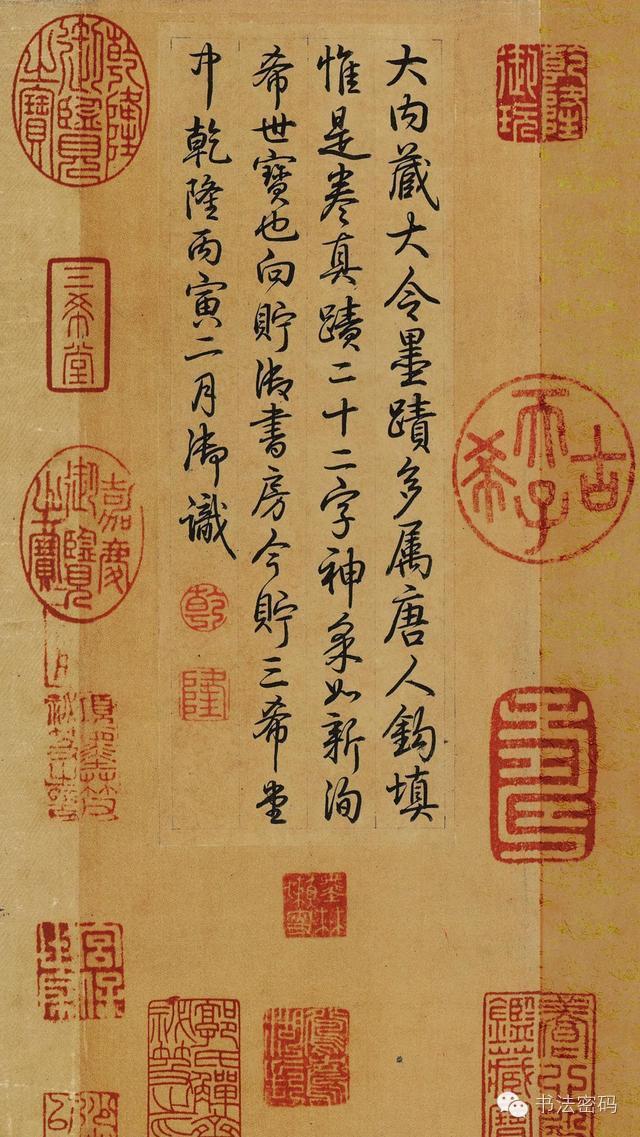 大内藏大令墨蹟多属唐人鈎填
惟是卷真蹟二十二字神采如新洵
希世寶也向貯御書房今貯三希堂
中乾隆丙寅二月御識
乾
隆
乾隆
御玩
古
希
天子
乾隆
御覽
之寶
三希堂
嘉慶
御覽
之寶
宮保
世家
书法密码